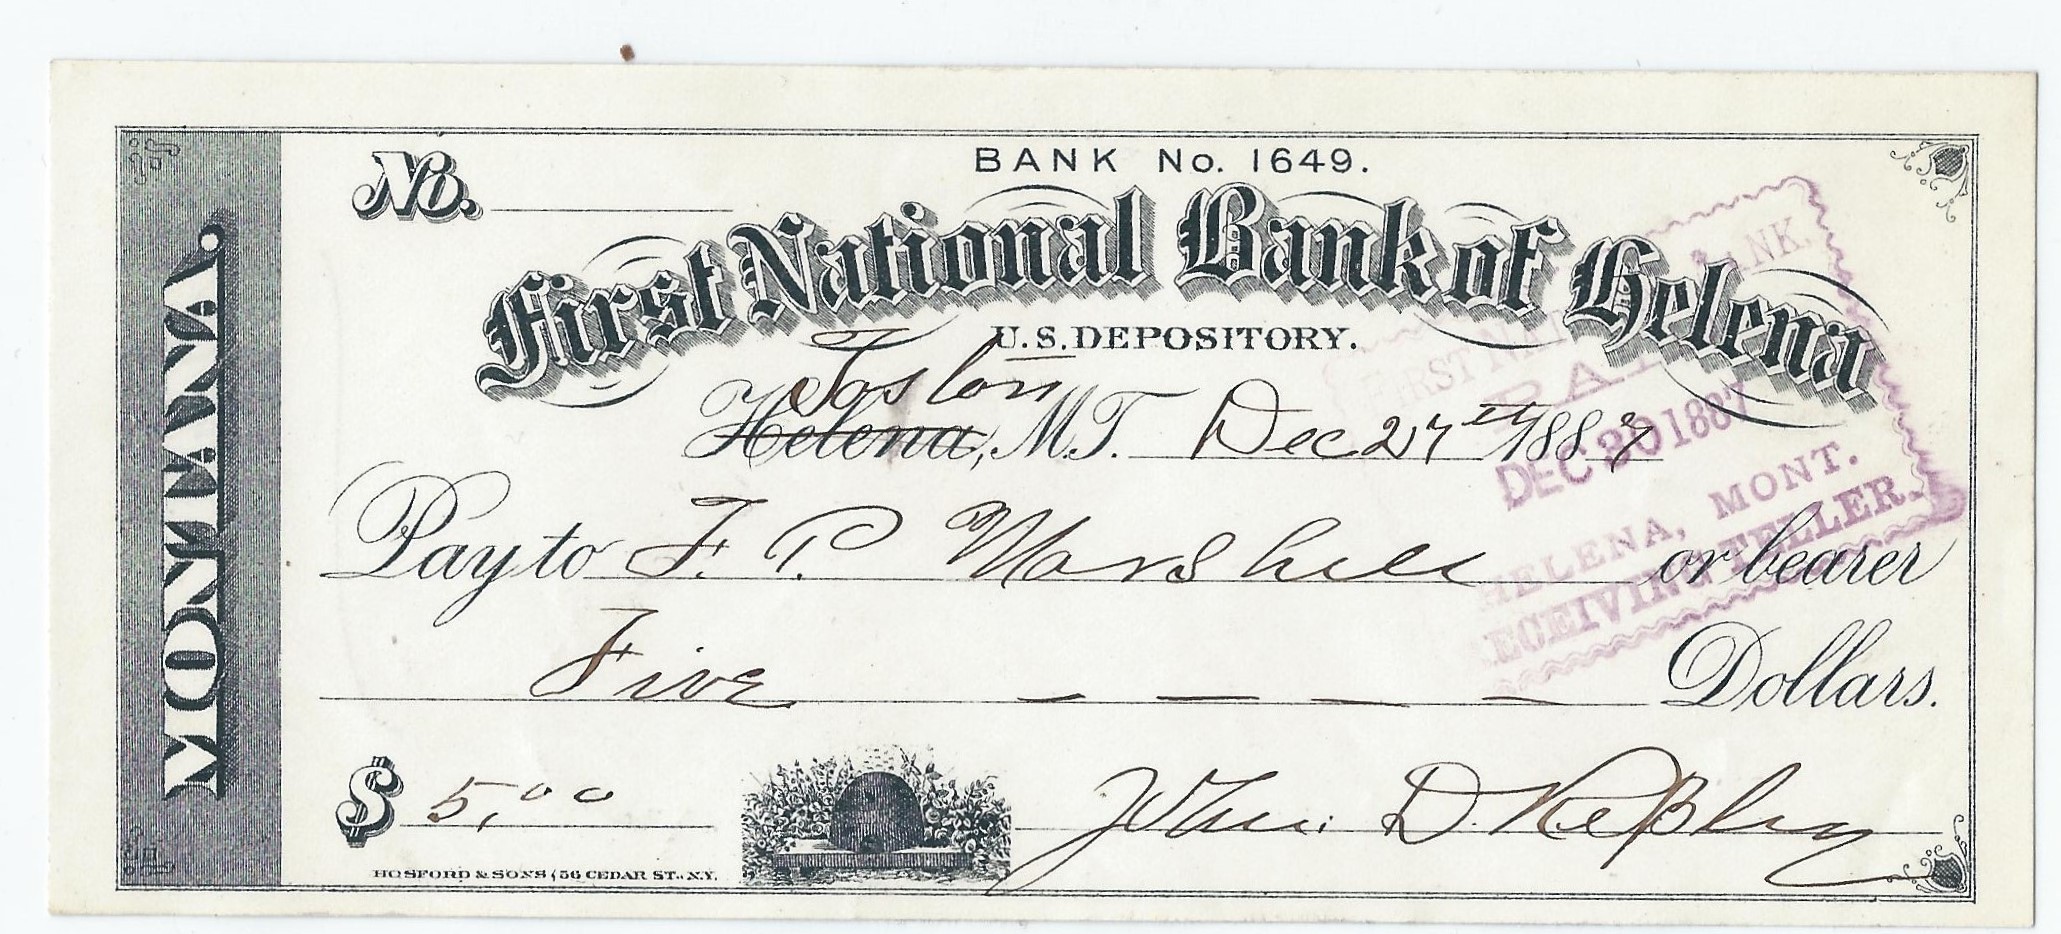 MONTANA.
No.
BANK No. 1649.
First National Bank of Helena
U.S. DEPOSITORY.
Toston
Helena, M.T. Dec 27th 1887
FIRST BANK.
PAID
DEC 30 1887
HELENA, MONT.
RECEIVING TELLER.
Pay to F. P. Marshall or bearer
Five Dollars.
$ 5.00
HOSFORD & SONS, 56 CEDAR ST. N.Y.
D.